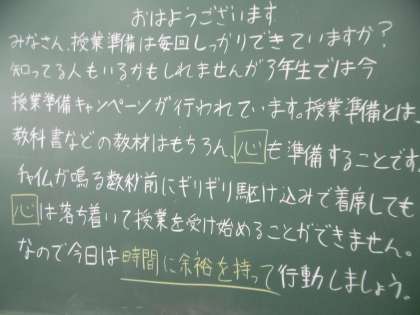 おはようございます
みなさん、授業準備は毎回しっかりできていますか？
知ってる人もいるかもしれませんが3年生では今
授業準備キャンペーンが行われています。授業準備とは、
教科書などの教材はもちろん、心も準備することです。
チャイムが鳴る数秒前にギリギリ駆け込みで着席しても
心は落ち着いて授業を受け始めることができません。
なので今日は時間に余裕を持って行動しましょう。